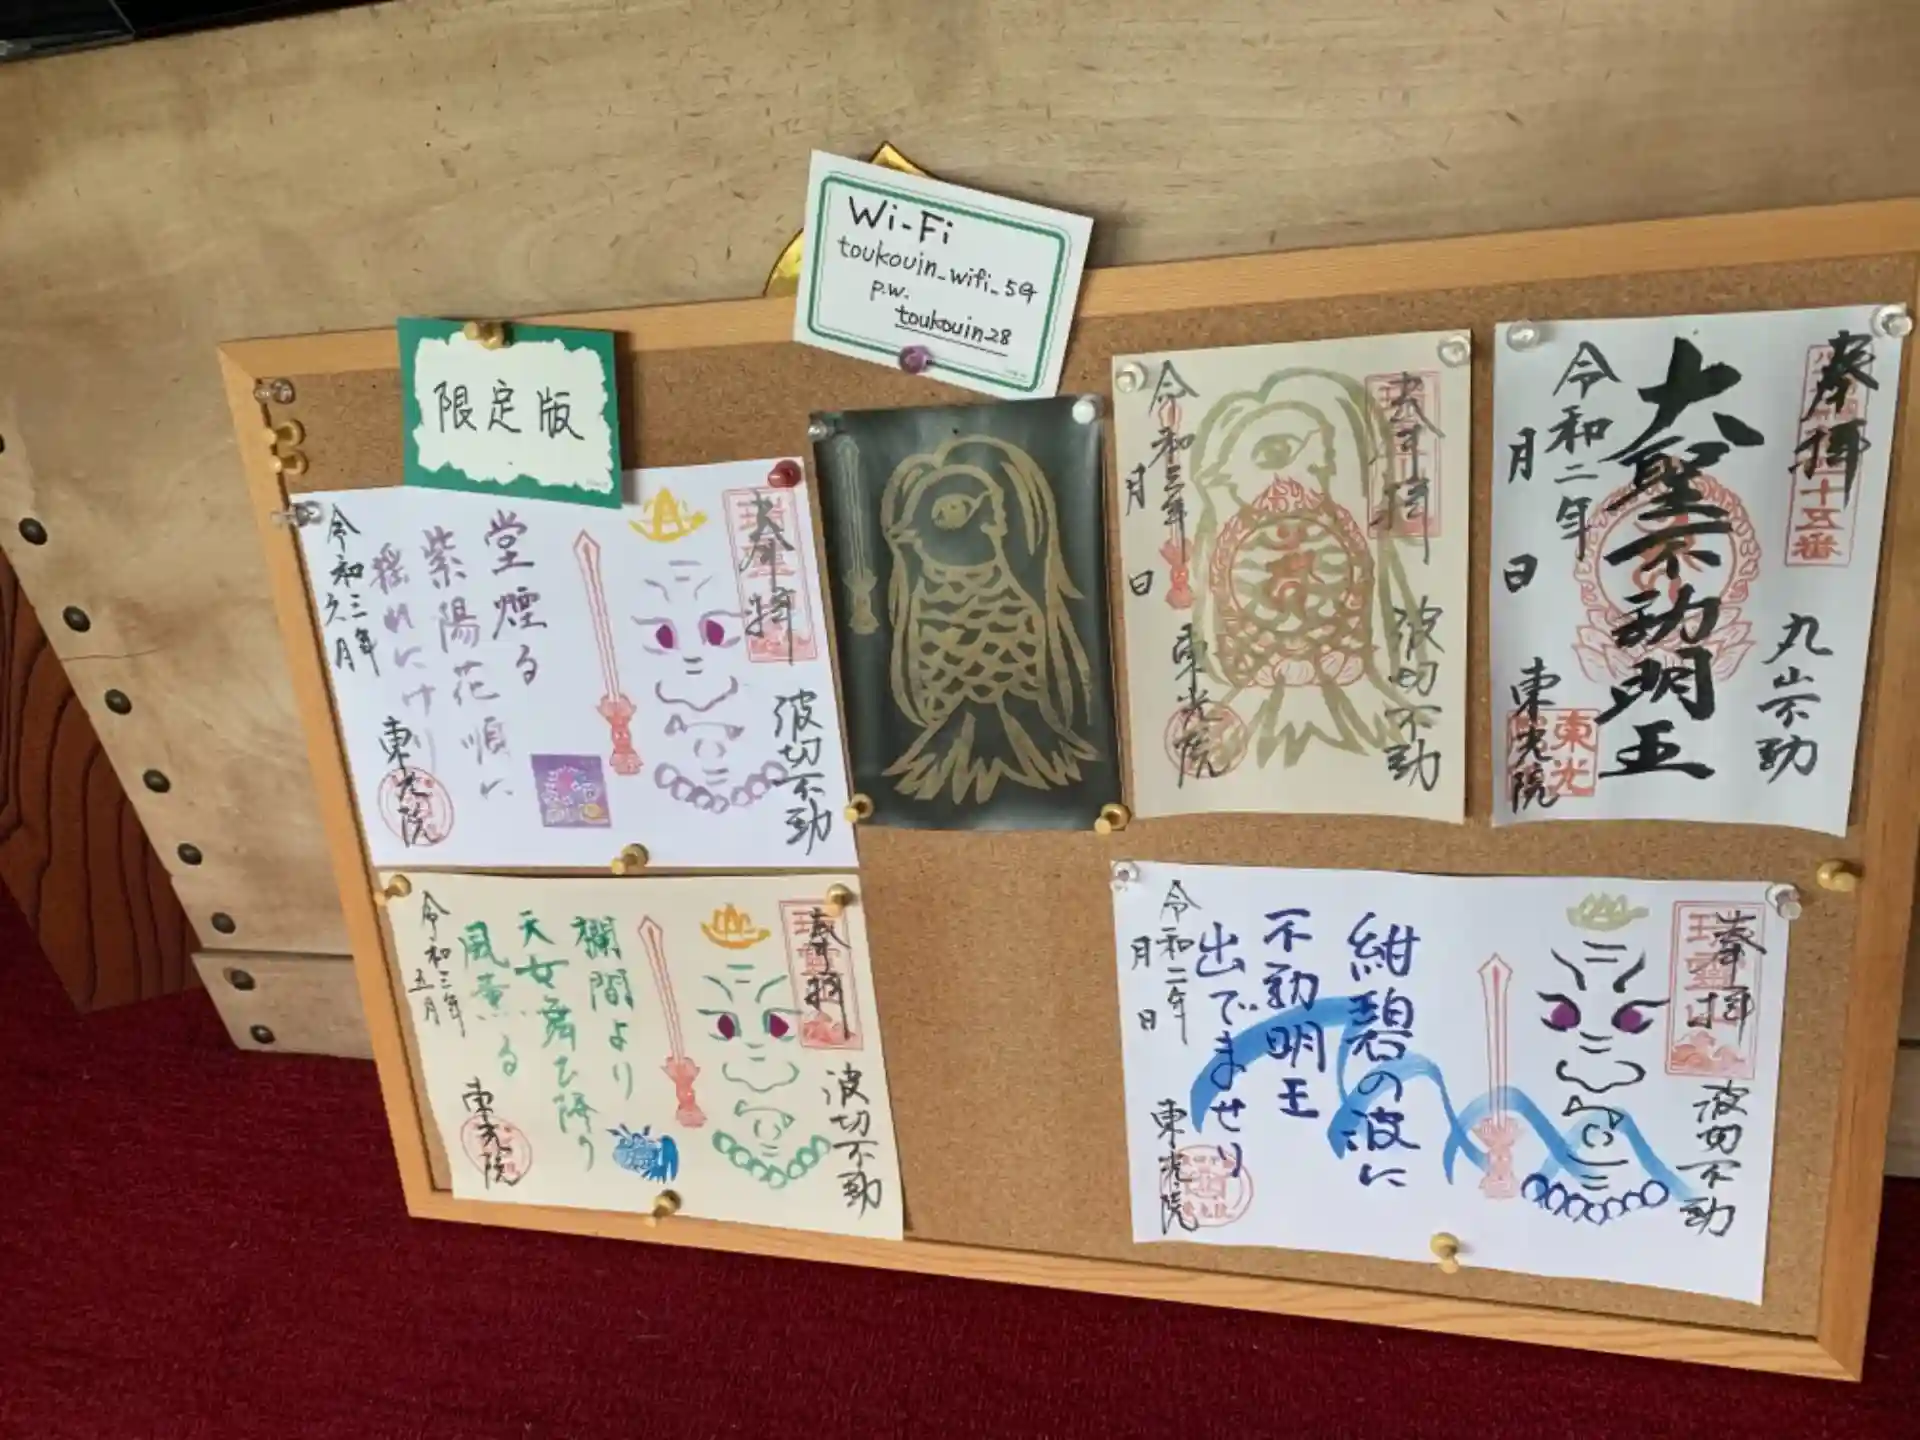 Wi-Fi
toukouin_wifi_5G
p.w.
toukouin28
限定版
奉拝
波切不動
堂煙る
紫陽花順に
揺れにけり
令和三年
六月
東光院
奉拝
波切不動
欄間より
天女舞ひ降り
風薫る
令和三年
五月
東光院
奉拝
波切不動
令和三年
月
日
東光院
奉拝
十五番
丸山不動
大聖不動明王
令和二年
月
日
東光院
東光
奉拝
波切不動
紺碧の波に
不動明王
出でませり
令和二年
月
日
東光院